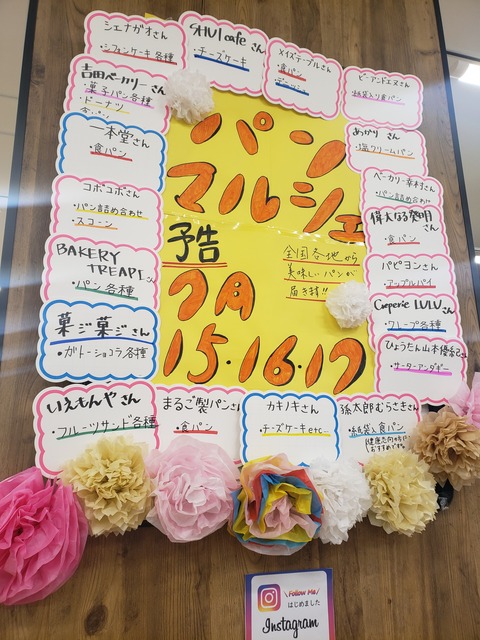 シェナガオさん
・シフォンケーキ各種
SHUI cafe さん
・チーズケーキ
メイズテーブルさん
・食パン
ビーアンドエヌさん
・紙袋入り食パン
吉田ベーカリーさん
・菓子パン各種
・ドーナツ
一本堂さん
・食パン
コボコボさん
・パン詰め合わせ
・スコーン
BAKERY
TREAPIさん
・パン各種
菓ジ菓ジさん
・ガトーショコラ各種
いえもんやさん
・フルーツサンド各種
まるご製パンさん
・食パン
カキノキさん
・チーズケーキetc…
孫太郎むらさきさん
・紙袋入食パン
あかりさん
・塩クリームパン
ベーカリー幸村さん
・パン詰め合わせ
偉大なる発明
さん
・食パン
パピヨンさん
・アップルパイ
Creperie LULUさん
・クレープ各種
ひょうたん山本優希さん
・サーターアンダギー
パン
マルシェ
予告
全国各地から
美味しいパンが
届きます!!
7月
15・16・17
\Follow Me/
はじめました
Instagram